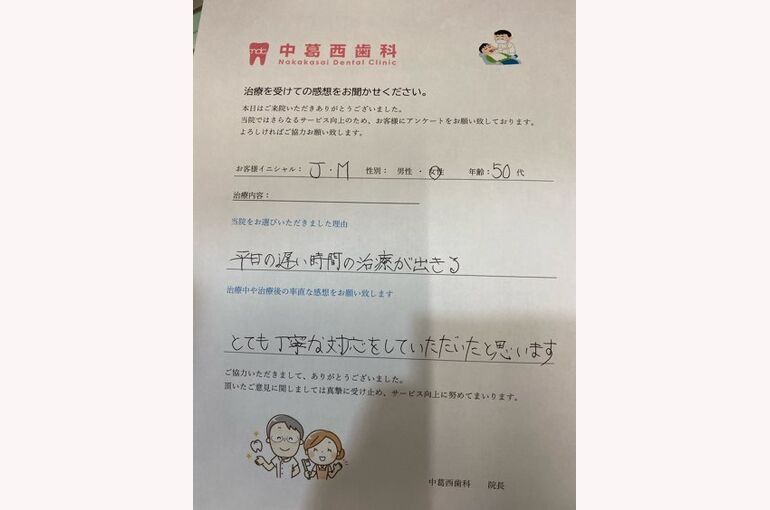 ndc 中葛西歯科
Nakakasai Dental Clinic
治療を受けての感想をお聞かせください。
本日はご来院いただきありがとうございました。
当院ではさらなるサービス向上のため、お客様にアンケートをお願い致しております。
よろしければご協力お願い致します。
お客様イニシャル： J・M 性別： 男性 ・ 女性 年齢：50 代
治療内容：
当院をお選びいただきました理由
平日の遅い時間の治療が出きる
治療中や治療後の率直な感想をお願い致します
とても丁寧な対応をしていただいたと思います
ご協力いただきまして、ありがとうございました。
頂いたご意見に関しましては真摯に受け止め、サービス向上に努めてまいります。
中葛西歯科 院長